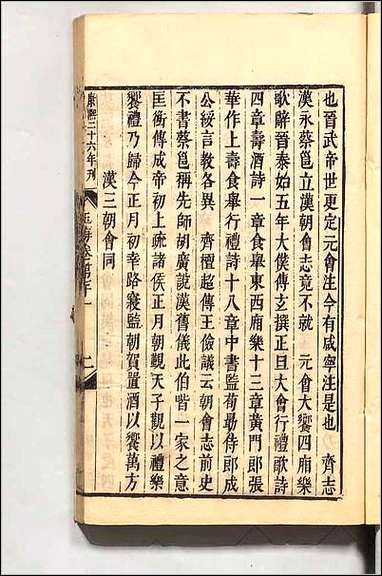 也晉武帝世更定元會注今有咸寧注是也 齊志
漢永蔡邕立漢朝會志竟不就 元會大饗四廂樂
歌辭晉泰始五年大僕傅玄撰正旦大會行禮歌詩
四章壽酒詩一章食舉東西廂樂十三章黃門郎張
華作上壽食舉行禮詩十八章中書監荀勗侍郎成
公綏言敎各異 齊檀超傳王儉議云朝會志前史
不書蔡邕稱先師胡廣說漢舊儀此伯喈一家之意
匡衡傳成帝初上疏諸侯正月朝覲天子觀以禮樂
饗禮乃歸今正月初幸路寢臨朝賀置酒以饗萬方
漢三朝會同
康熙二十六年刊